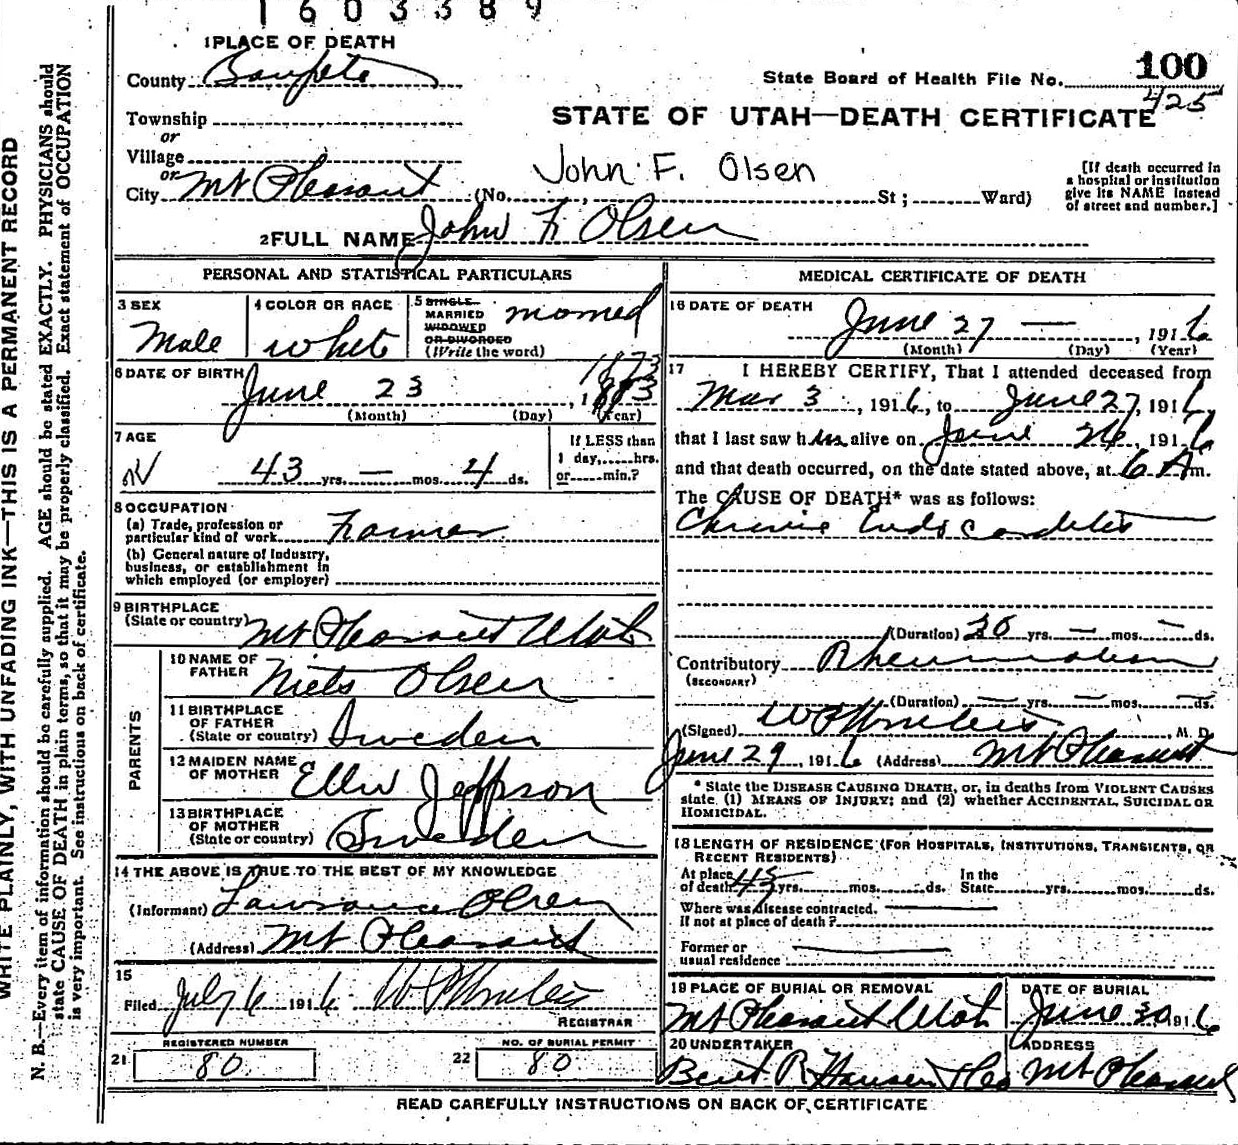 1603389
1 PLACE OF DEATH
County Sanpete
State Board of Health File No. 100
425
Township
or
STATE OF UTAH—DEATH CERTIFICATE
Village
or
John F. Olsen
City Mt Pleasant (No. St; Ward)
[If death occurred in
a hospital or institution
give its NAME instead
of street and number.]
2 FULL NAME John F. Olsen
PERSONAL AND STATISTICAL PARTICULARS
3 SEX
Male
4 COLOR OR RACE
White
5 SINGLE
MARRIED
WIDOWED
OR DIVORCED
(Write the word)
married
6 DATE OF BIRTH
1873
June 23, 1883
(Month) (Day) (Year)
7 AGE
43 yrs. — mos. 4 ds.
If LESS than
1 day, hrs.
or min.?
8 OCCUPATION
(a) Trade, profession or
particular kind of work Farmer
(b) General nature of Industry,
business, or establishment in
which employed (or employer)
9 BIRTHPLACE
(State or country) Mt Pleasant Utah
PARENTS
10 NAME OF
FATHER Niels Olsen
11 BIRTHPLACE
OF FATHER
(State or country) Sweden
12 MAIDEN NAME
OF MOTHER Ellen Jeppson
13 BIRTHPLACE
OF MOTHER
(State or country) Sweden
14 THE ABOVE IS TRUE TO THE BEST OF MY KNOWLEDGE
(Informant) Lawrence Olsen
(Address) Mt Pleasant
15
Filed July 6 1916
REGISTRAR
REGISTERED NUMBER
21 80
NO. OF BURIAL PERMIT
22 80
MEDICAL CERTIFICATE OF DEATH
16 DATE OF DEATH
June 27 —, 1916
(Month) (Day) (Year)
17 I HEREBY CERTIFY, That I attended deceased from
Mar 3, 1916, to June 27, 1916,
that I last saw him alive on June 26, 1916
and that death occurred, on the date stated above, at 6 A m.
The CAUSE OF DEATH* was as follows:
Chronic Endocarditis
(Duration) 30 yrs. — mos. — ds.
Contributory Rheumatism
(SECONDARY)
(Duration) — yrs. — mos. — ds.
(Signed) M. D.
June 29, 1916 (Address) Mt Pleasant
* State the DISEASE CAUSING DEATH, or, in deaths from VIOLENT CAUSES
state (1) MEANS OF INJURY; and (2) whether ACCIDENTAL, SUICIDAL OR
HOMICIDAL.
18 LENGTH OF RESIDENCE (FOR HOSPITALS, INSTITUTIONS, TRANSIENTS, OR
RECENT RESIDENTS)
At place
of death 43 yrs. mos. ds.
In the
State yrs. mos. ds.
Where was disease contracted,
If not at place of death?
Former or
usual residence
19 PLACE OF BURIAL OR REMOVAL
Mt Pleasant Utah
DATE OF BURIAL
June 30 1916
20 UNDERTAKER
Bent R Hansen
ADDRESS
Mt Pleasant
READ CAREFULLY INSTRUCTIONS ON BACK OF CERTIFICATE
WRITE PLAINLY, WITH UNFADING INK—THIS IS A PERMANENT RECORD
N. B.—Every item of information should be carefully supplied. AGE should be stated EXACTLY. PHYSICIANS should
state CAUSE OF DEATH in plain terms, so that it may be properly classified. Exact statement of OCCUPATION
is very important. See instructions on back of certificate.